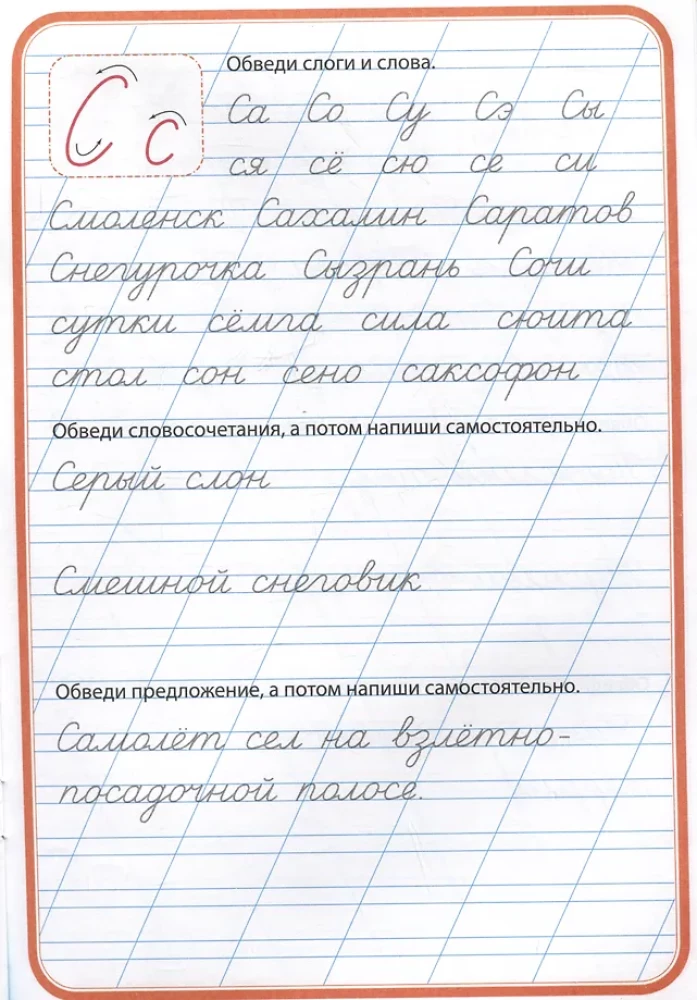 С с
Обведи слоги и слова.
Са Со Су Сэ Сы
ся сё сю се си
Смоленск Сахалин Саратов
Снегурочка Сызрань Сочи
сутки сёмга сила сюита
стол сон сено саксофон
Обведи словосочетания, а потом напиши самостоятельно.
Серый слон
Смешной снеговик
Обведи предложение, а потом напиши самостоятельно.
Самолёт сел на взлётно-
посадочной полосе.